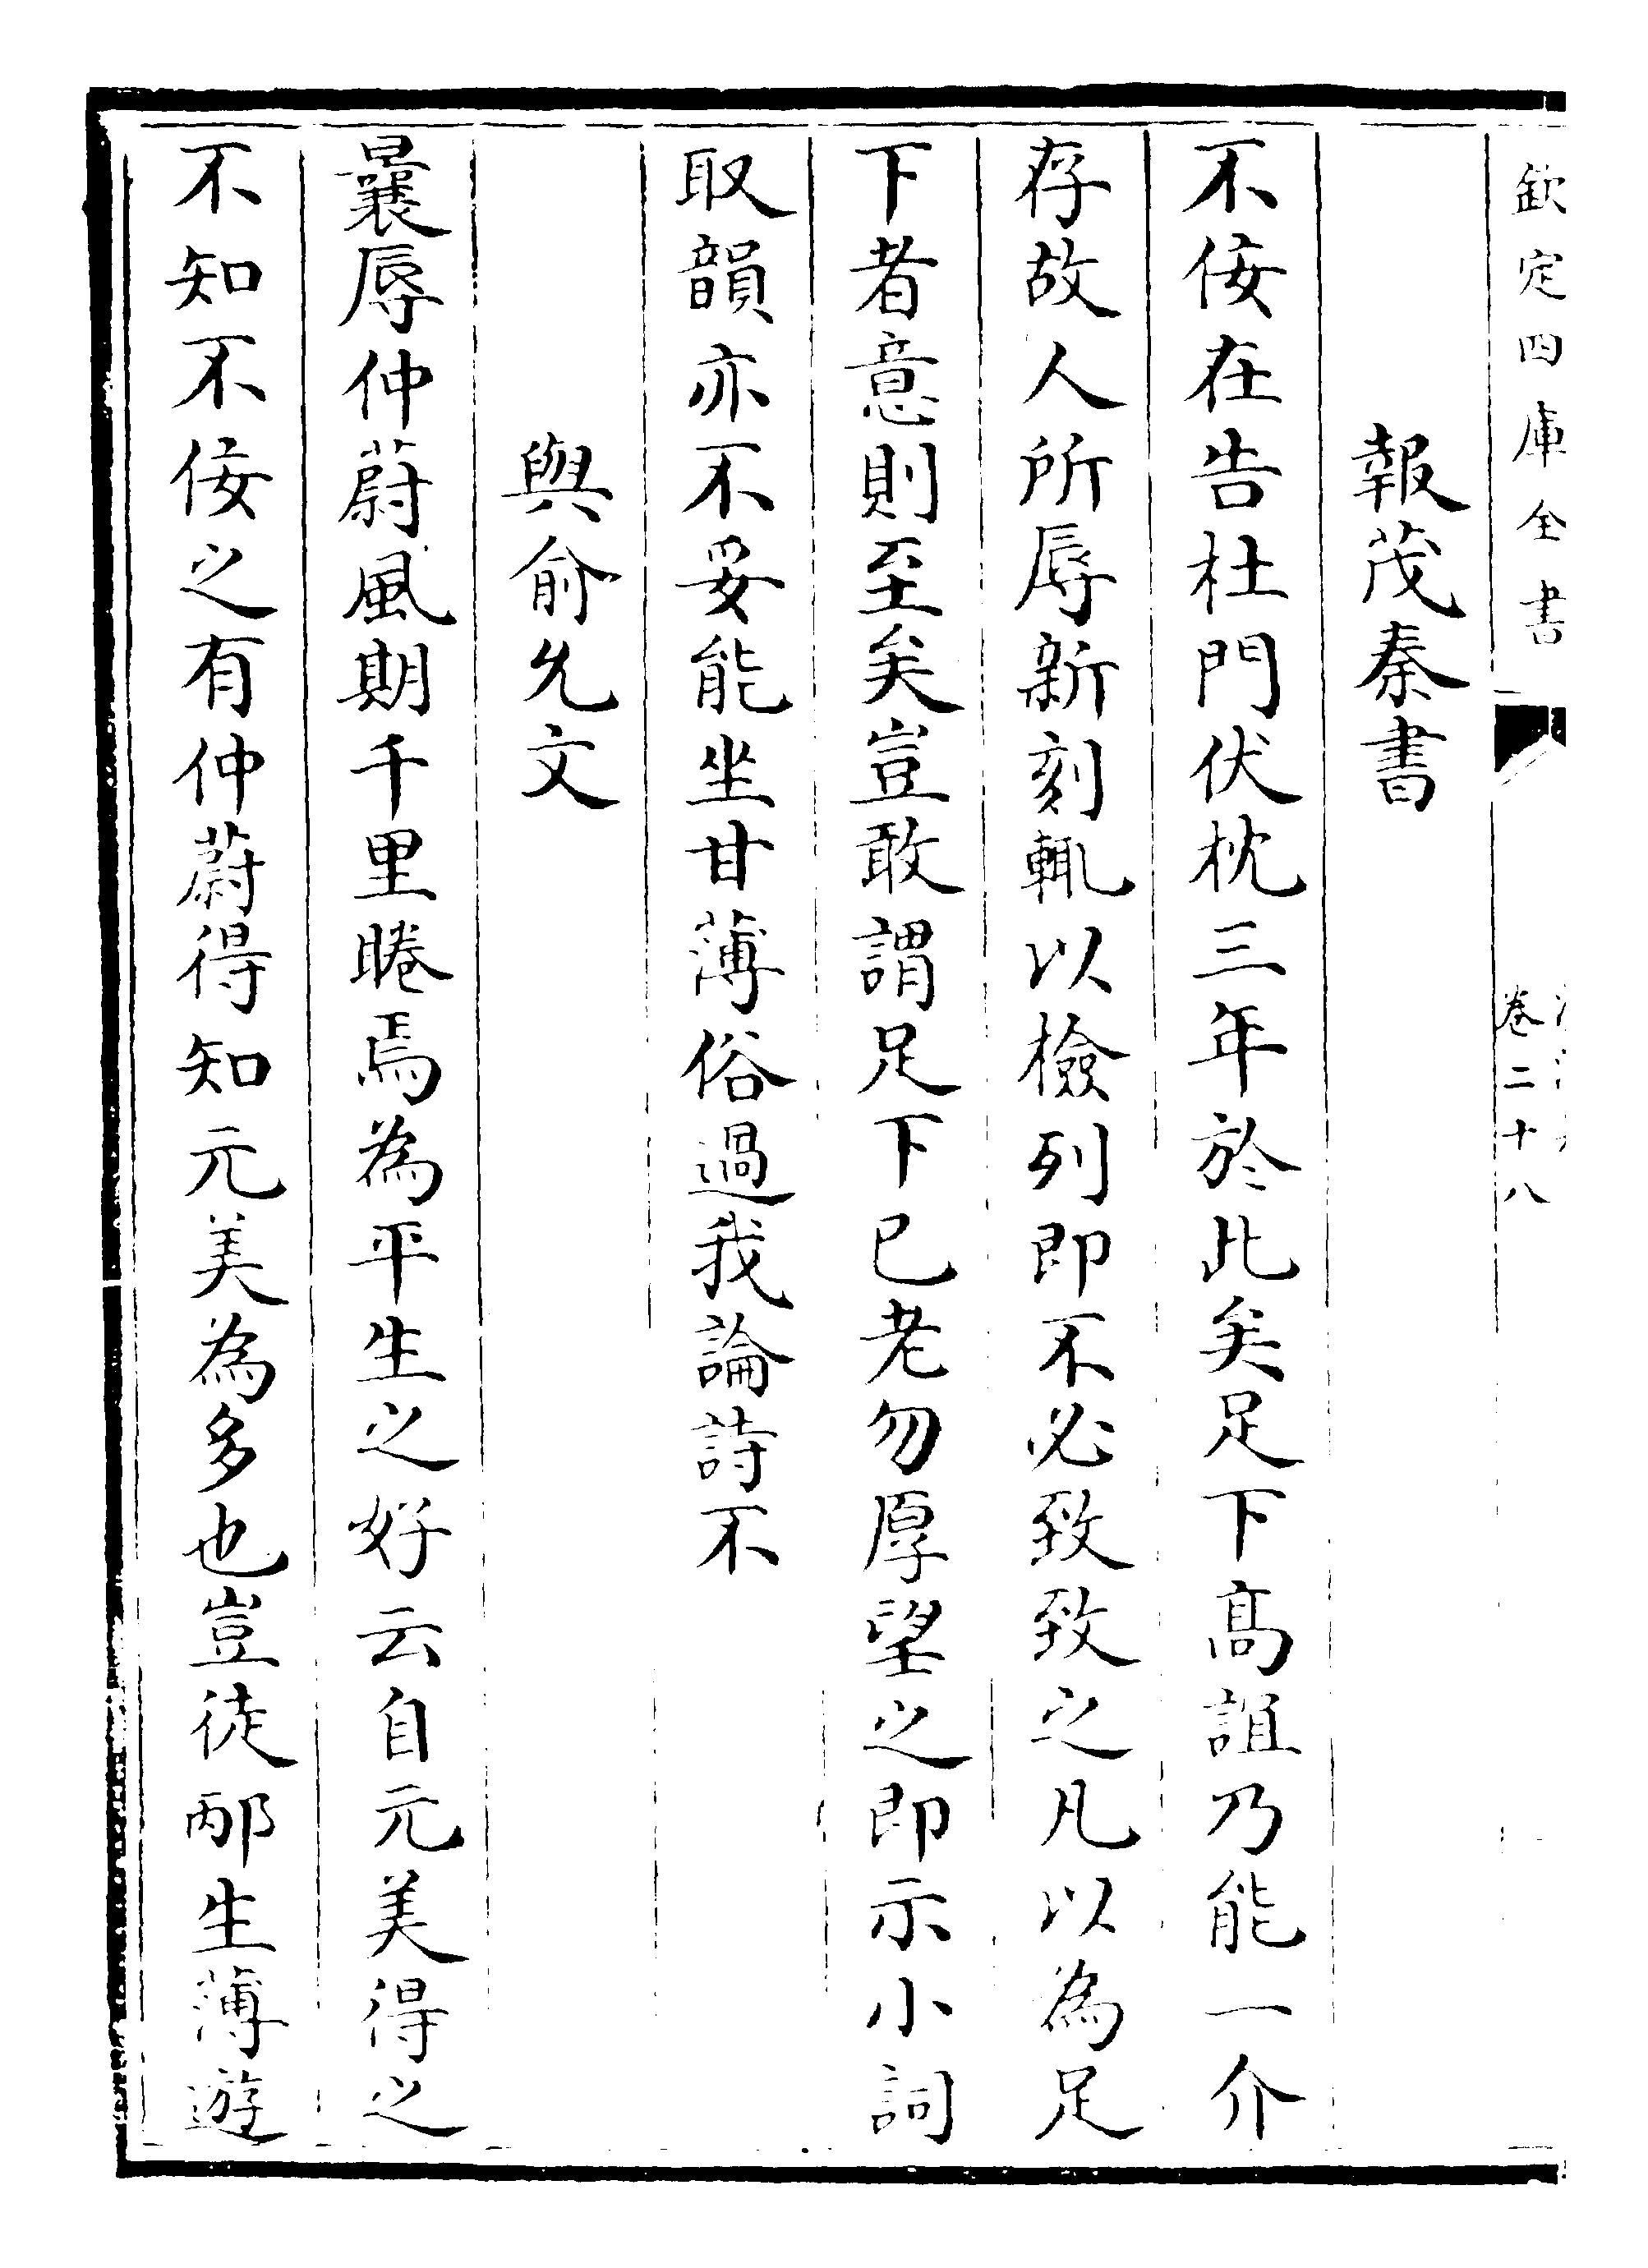 欽定四庫全書
卷二十八
報茂秦書
不佞在告杜門伏枕三年於此矣足下髙誼乃能一介
存故人所辱新刻輒以檢列即不必致致之凡以為足
下者意則至矣豈敢謂足下已老勿厚望之即示小詞
取韻亦不妥能坐甘薄俗過我論詩不
與俞允文
曩辱仲蔚風期千里睠焉為平生之好云自元美得之
不知不佞之有仲蔚得知元美為多也豈徒邴生薄遊